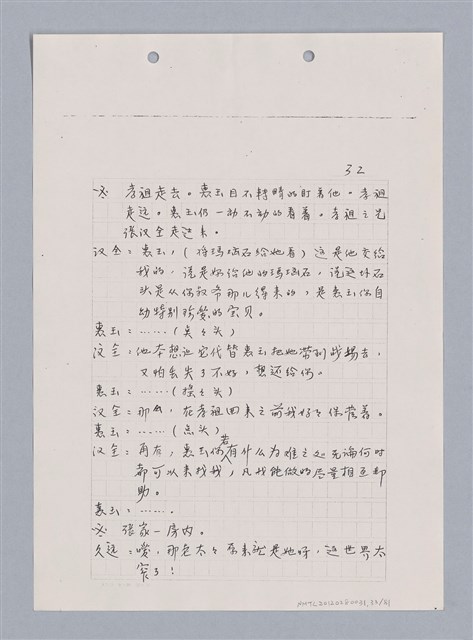 32
※ 孝祖走去。惠玉目不轉睛的盯着他。孝祖
走远。惠玉仍一动不动的看着。孝祖之兄
張汉全走过来。
汉全：惠玉，(将瑪瑙石给她看)这是他交给
我的，说是妳给他的瑪瑙石，说这块石
头是从你叔爷那儿得来的，是惠玉你自
幼特别珍爱的宝贝。
惠玉：……(点々头)
汉全：他本想让它代替惠玉把她带到战場去，
又怕丢失了不好，想还给你。
惠玉：……(摇々头)
汉全：那么，在孝祖回来之前我好々保管着。
惠玉：……(点头)
汉全：再有，惠玉你若有什么为难之处无论何时
都可以来找我，凡我能做的尽量相互却
助。
惠玉：……。
※ 張家一房内。
久远：嗳，那老太々原来就是她呀，这世界太
窄了！
NMTL20120280081, 33/81